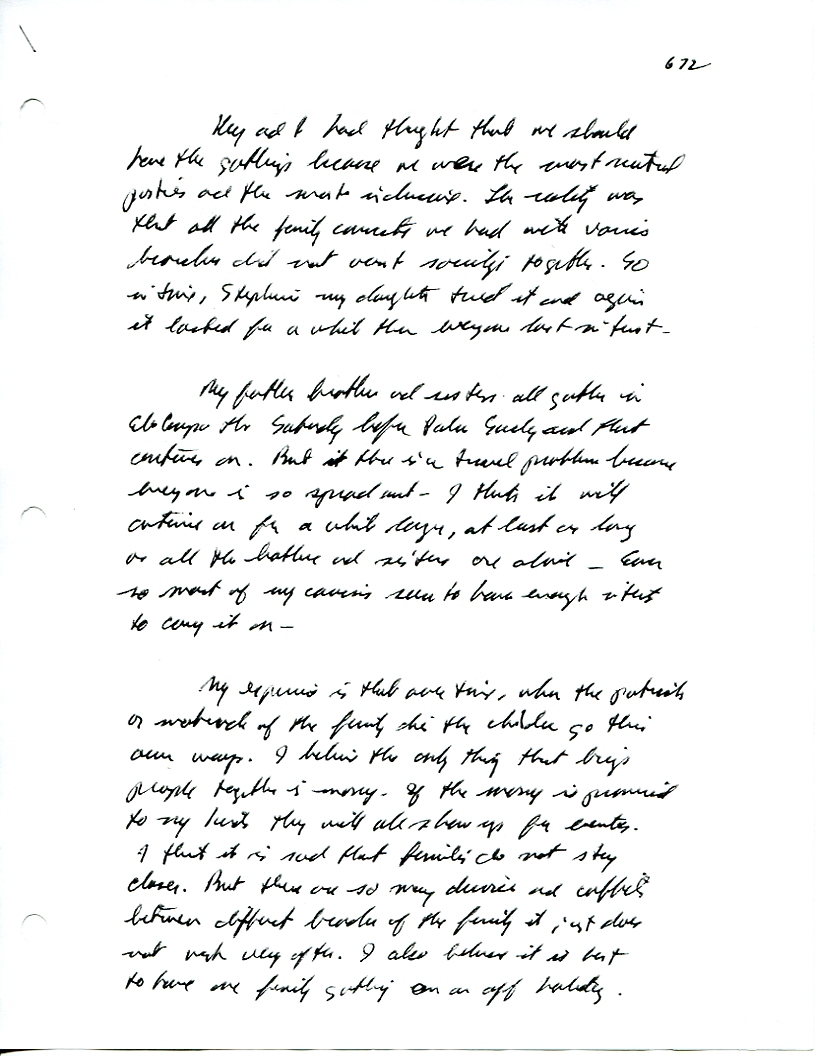 672
and I had thought that we should
have the gatherings because we were the most neutral
parties and the most inclusive. The reality was
that all the family connects we had with various
branches did not want socialize together. So
in time, Stephanie my daughter tried it and again
it lasted for a while then everyone lost interest-
My father brother and sisters all gather in
the Saturday before Palm Sunday and that
continues on. But it there is a travel problem because
everyone is so spread out - I think it will
continue on for a while longer, at least as long
as all the brothers and sisters are alive - Even
so most of my cousins seem to have enough interest
to carry it on -
My experience is that over time, when the patriarch
or matriarch of the family die the children go their
own ways. I believe the only thing that brings
people together is money. If the money is promised
to my they will all show up for events.
I think it is sad that families do not stay
closer. But there are so many divorces and conflicts
between different branches of the family it just does
not work very often. I also believe it is best
to have one family gathering on an off holiday.